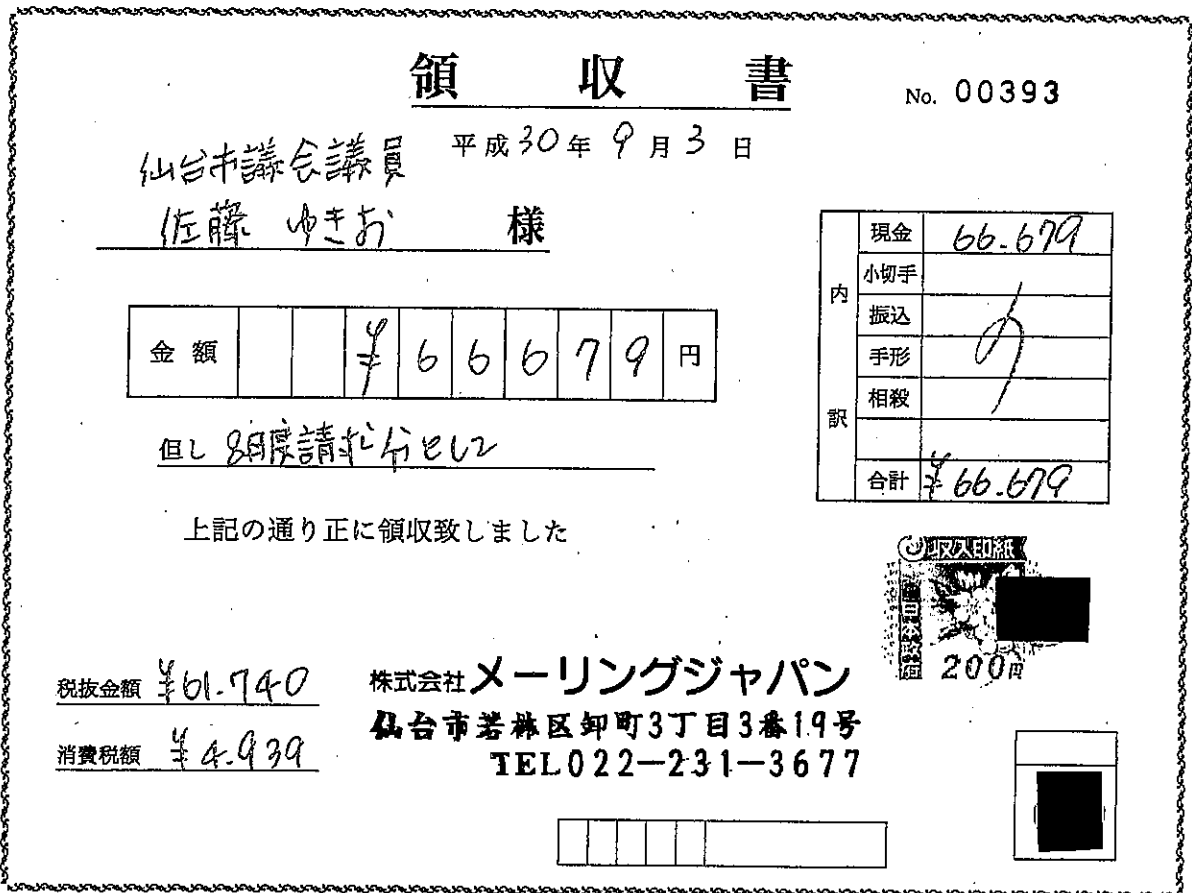 領収書
No. 00393
平成30年9月3日
仙台市議会議員
佐藤 ゆきお 様
金額 ¥66679円
但し 8月度請求分として
上記の通り正に領収致しました
内訳
現金 66.679
小切手
振込
手形
相殺
合計 ¥66.679
収入印紙
200円
税抜金額 ¥61.740
消費税額 ¥4.939
株式会社メーリングジャパン
仙台市若林区卸町3丁目3番19号
TEL022-231-3677